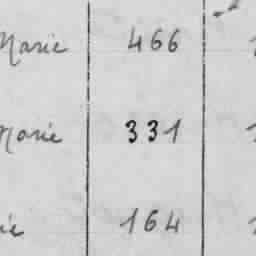 Marie 466
Marie 331
ie 164